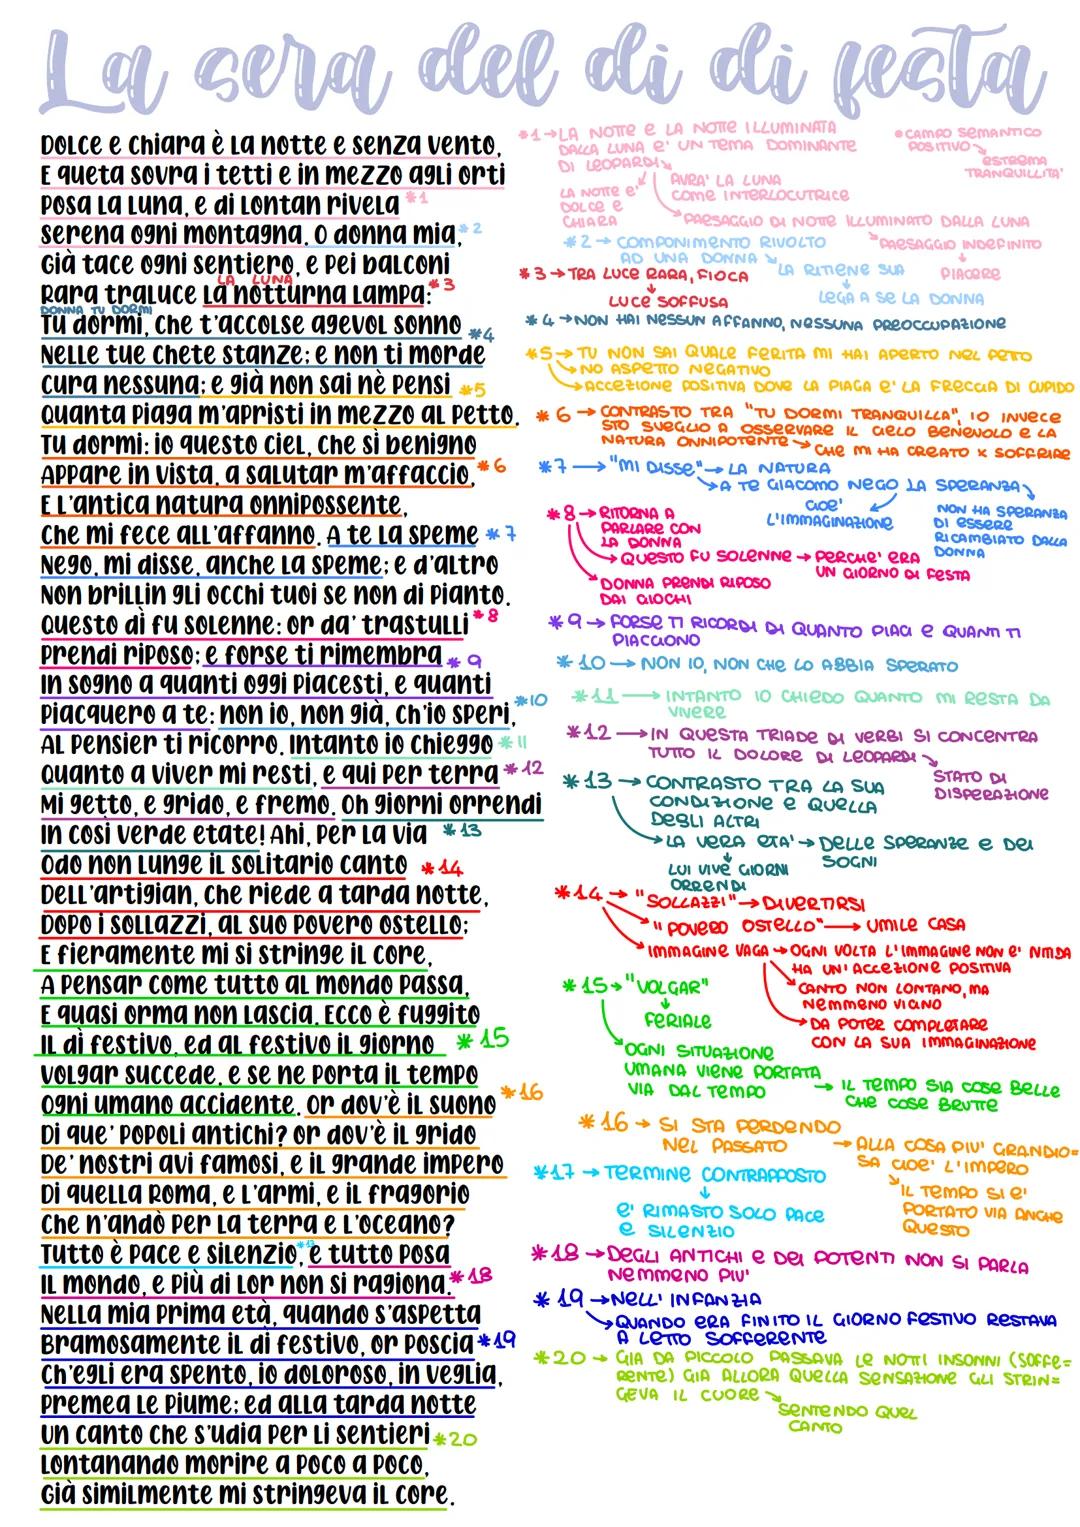 La sera del di di festa
DOLCE E CHIARA È LA NOTTE E SENZA VENTO,
E QUETA SOVRA I TETTI E IN MEZZO AGLI ORTI
POSA LA LUNA, E DI LONTAN RIVELA *1
SERENA OGNI MONTAGNA. O DONNA MIA, *2
GIÀ TACE OGNI SENTIERO, E PEI BALCONI
LA LUNA
RARA TRALUCE LA NOTTURNA LAMPA: *3
DONNA TU DORMI
TU DORMI, CHE T'ACCOLSE AGEVOL SONNO *4
NELLE TUE CHETE STANZE; E NON TI MORDE
CURA NESSUNA; E GIÀ NON SAI NÈ PENSI *5
QUANTA PIAGA M'APRISTI IN MEZZO AL PETTO.
TU DORMI: IO QUESTO CIEL, CHE SÌ BENIGNO
APPARE IN VISTA, A SALUTAR M'AFFACCIO, *6
E L'ANTICA NATURA ONNIPOSSENTE,
CHE MI FECE ALL'AFFANNO. A TE LA SPEME *7
NEGO, MI DISSE, ANCHE LA SPEME; E D'ALTRO
NON BRILLIN GLI OCCHI TUOI SE NON DI PIANTO.
QUESTO DÌ FU SOLENNE: OR DA' TRASTULLI *8
PRENDI RIPOSO; E FORSE TI RIMEMBRA *9
IN SOGNO A QUANTI OGGI PIACESTI, E QUANTI
PIACQUERO A TE: NON IO, NON GIÀ, CH'IO SPERI, *10
AL PENSIER TI RICORRO. INTANTO IO CHIEGGO *11
QUANTO A VIVER MI RESTI, E QUI PER TERRA *12
MI GETTO, E GRIDO, E FREMO. OH GIORNI ORRENDI
IN COSÌ VERDE ETATE! AHI, PER LA VIA *13
ODO NON LUNGE IL SOLITARIO CANTO *14
DELL'ARTIGIAN, CHE RIEDE A TARDA NOTTE,
DOPO I SOLLAZZI, AL SUO POVERO OSTELLO;
E FIERAMENTE MI SI STRINGE IL CORE,
A PENSAR COME TUTTO AL MONDO PASSA,
E QUASI ORMA NON LASCIA. ECCO È FUGGITO
IL DÌ FESTIVO, ED AL FESTIVO IL GIORNO *15
VOLGAR SUCCEDE, E SE NE PORTA IL TEMPO
OGNI UMANO ACCIDENTE. OR DOV'È IL SUONO *16
DI QUE' POPOLI ANTICHI? OR DOV'È IL GRIDO
DE' NOSTRI AVI FAMOSI, E IL GRANDE IMPERO
DI QUELLA ROMA, E L'ARMI, E IL FRAGORIO
CHE N'ANDÒ PER LA TERRA E L'OCEANO?
TUTTO È PACE E SILENZIO, *17 E TUTTO POSA
IL MONDO, E PIÙ DI LOR NON SI RAGIONA. *18
NELLA MIA PRIMA ETÀ, QUANDO S'ASPETTA
BRAMOSAMENTE IL DÌ FESTIVO, OR POSCIA *19
CH'EGLI ERA SPENTO, IO DOLOROSO, IN VEGLIA,
PREMEA LE PIUME; ED ALLA TARDA NOTTE
UN CANTO CHE S'UDIA PER LI SENTIERI *20
LONTANANDO MORIRE A POCO A POCO,
GIÀ SIMILMENTE MI STRINGEVA IL CORE.
*1 → LA NOTTE E LA NOTTE ILLUMINATA
DALLA LUNA E' UN TEMA DOMINANTE
DI LEOPARDI
LA NOTTE E'
DOLCE E
CHIARA
AVRA' LA LUNA
COME INTERLOCUTRICE
PAESAGGIO DI NOTTE ILLUMINATO DALLA LUNA
PAESAGGIO INDEFINITO
PIACERE
• CAMPO SEMANTICO
POSITIVO
ESTREMA
TRANQUILLITA'
*2 → COMPONIMENTO RIVOLTO
AD UNA DONNA
LA RITIENE SUA
LEGA A SE LA DONNA
*3 → TRA LUCE RARA, FIOCA
LUCE SOFFUSA
*4 → NON HAI NESSUN AFFANNO, NESSUNA PREOCCUPAZIONE
*5 → TU NON SAI QUALE FERITA MI HAI APERTO NEL PETTO
NO ASPETTO NEGATIVO
ACCEZIONE POSITIVA DOVE LA PIAGA E' LA FRECCIA DI CUPIDO
*6 → CONTRASTO TRA "TU DORMI TRANQUILLA", IO INVECE
STO SVEGLIO A OSSERVARE IL CIELO BENEVOLO E LA
NATURA ONNIPOTENTE → CHE MI HA CREATO X SOFFRIRE
*7 → "MI DISSE" → LA NATURA
A TE GIACOMO NEGO LA SPERANZA
CIOE'
L'IMMAGINAZIONE
NON HA SPERANZA
DI ESSERE
RICAMBIATO DALLA
DONNA
*8 → RITORNA A
PARLARE CON
LA DONNA
QUESTO FU SOLENNE → PERCHE' ERA
UN GIORNO DI FESTA
DONNA PRENDI RIPOSO
DAI GIOCHI
*9 → FORSE TI RICORDI DI QUANTO PIACI E QUANTI TI
PIACCIONO
*10 → NON IO, NON CHE LO ABBIA SPERATO
*11 → INTANTO IO CHIEDO QUANTO MI RESTA DA
VIVERE
*12 → IN QUESTA TRIADE DI VERBI SI CONCENTRA
TUTTO IL DOLORE DI LEOPARDI
STATO DI
DISPERAZIONE
*13 → CONTRASTO TRA LA SUA
CONDIZIONE E QUELLA
DEGLI ALTRI
LA VERA ETA' → DELLE SPERANZE E DEI
SOGNI
LUI VIVE GIORNI
ORRENDI
*14 → "SOLLAZZI" → DIVERTIRSI
"POVERO OSTELLO" → UMILE CASA
IMMAGINE VAGA → OGNI VOLTA L'IMMAGINE NON E' NITIDA
HA UN'ACCEZIONE POSITIVA
CANTO NON LONTANO, MA
NEMMENO VICINO
DA POTER COMPLETARE
CON LA SUA IMMAGINAZIONE
*15 → "VOLGAR"
FERIALE
OGNI SITUAZIONE
UMANA VIENE PORTATA
VIA DAL TEMPO → IL TEMPO SIA COSE BELLE
CHE COSE BRUTTE
*16 → SI STA PERDENDO
NEL PASSATO → ALLA COSA PIU' GRANDIO=
SA CIOE' L'IMPERO
IL TEMPO SI E'
PORTATO VIA ANCHE
QUESTO
*17 → TERMINE CONTRAPPOSTO
E' RIMASTO SOLO PACE
E SILENZIO
*18 → DEGLI ANTICHI E DEI POTENTI NON SI PARLA
NEMMENO PIU'
*19 → NELL'INFANZIA
QUANDO ERA FINITO IL GIORNO FESTIVO RESTAVA
A LETTO SOFFERENTE
*20 → GIA DA PICCOLO PASSAVA LE NOTTI INSONNI (SOFFE=
RENTE) GIA ALLORA QUELLA SENSAZIONE GLI STRIN=
GEVA IL CUORE
SENTENDO QUEL
CANTO